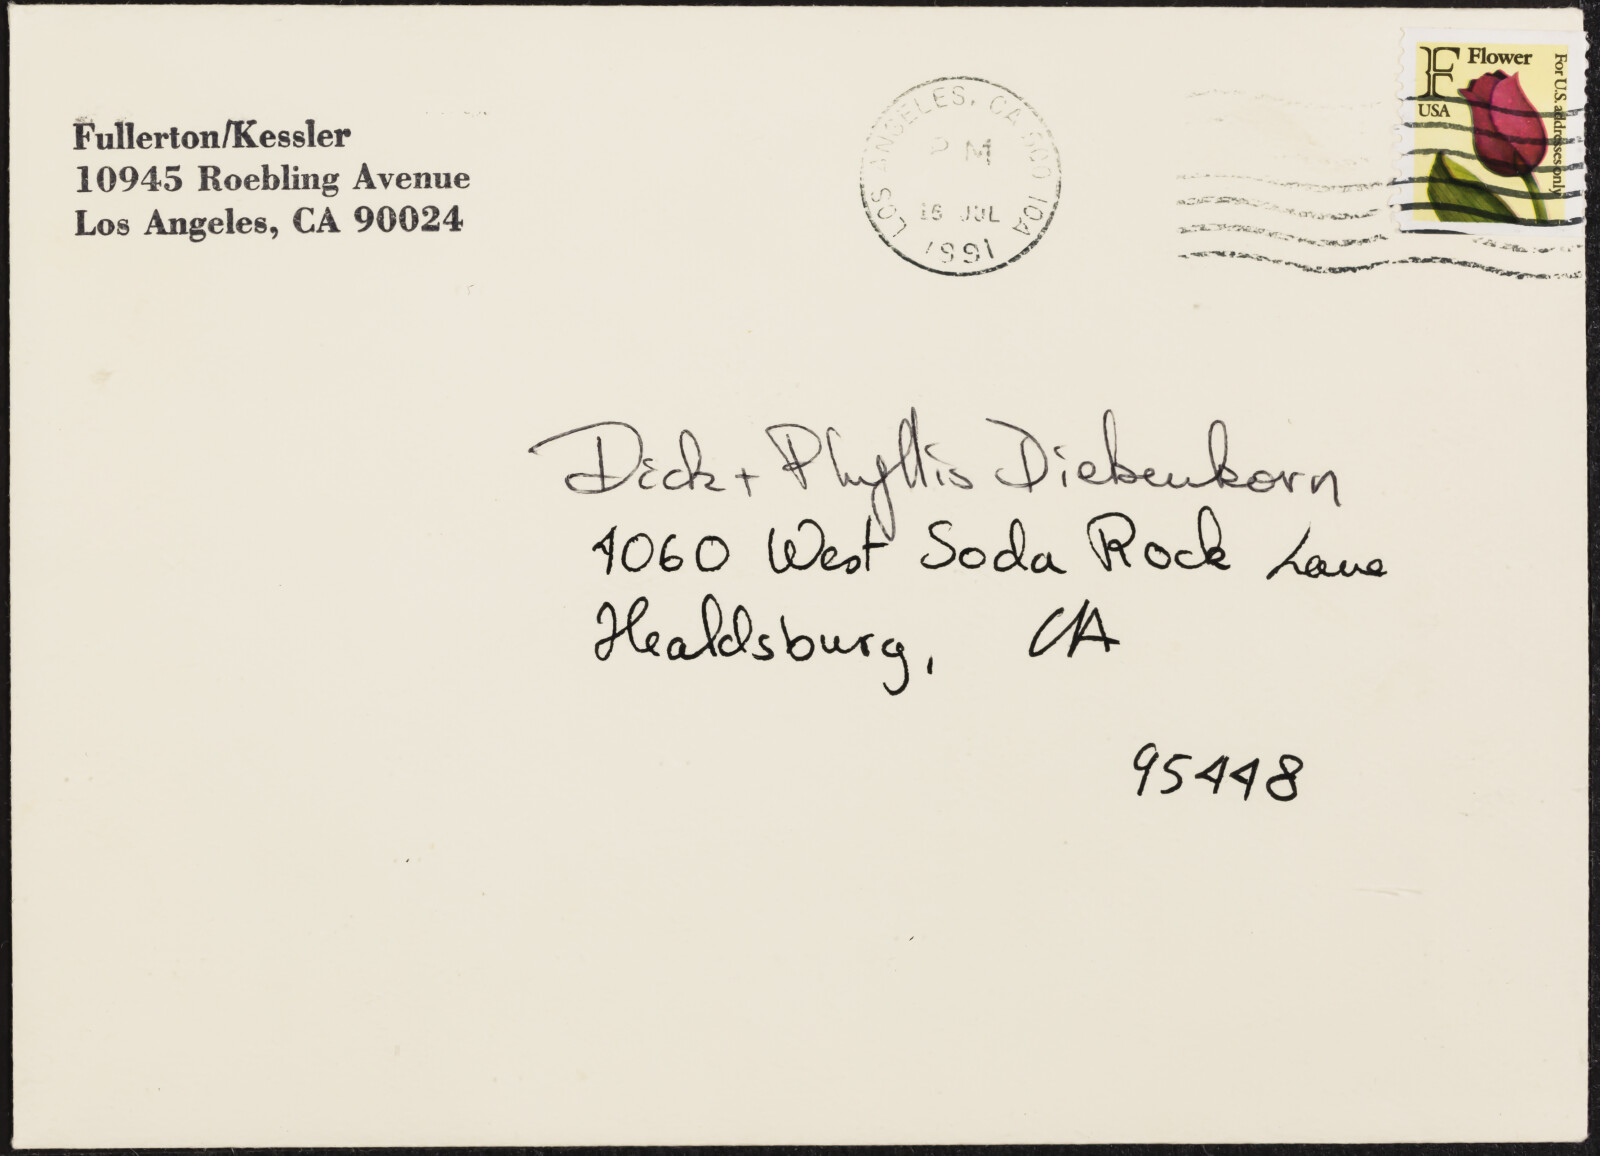 Fullerton/Kessler
10945 Roebling Avenue
Los Angeles, CA 90024
LOS ANGELES, CA 900 10A
PM
16 JUL
1991
F Flower
USA
For U.S. addresses only
Dick + Phyllis Diebenkorn
4060 West Soda Rock Lane
Healdsburg, CA
95448